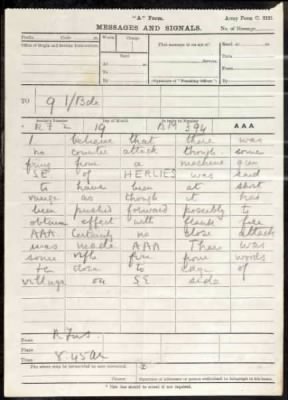 "A" Form.
Army Form C. 2121.
MESSAGES AND SIGNALS.
No. of Message
Prefix Code
Words
Charge
This message is on a/c of:
Recd. at
Office of Origin and Service Instructions.
Sent
Date
At
From
To
By
By
(Signature of "Franking Officer.")
TO 9 I/Bde
Sender's Number
Day of Month
In reply to Number
AAA
19
BM 594
I believe that there was
no counter attack though some
firing from a machine gun
SE of HERLIES was said
to have been at short
range as though it has
been pushed forward possibly to
obtain effect with flank fire
AAA Certainly no close attack
was made AAA There was
some rifle fire from
close to edge of
village on SE side
From R Fus
Place
Time 8.45 am
The above may be forwarded as now corrected.
Z
Censor.
Signature of Addressor or person authorised to telegraph in his name.
* This line should be erased if not required.